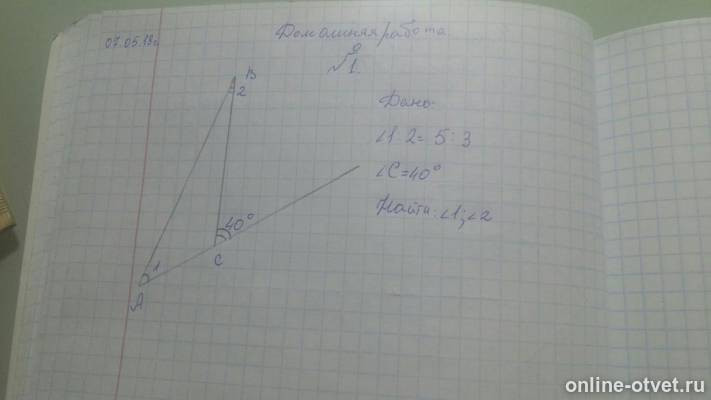 07.05.19г.
Домашняя работа
№1.
B
2
Дано:
∠1:2=5:3
∠C=40°
Найти: ∠1;∠2
40°
C
1
A
online-otvet.ru